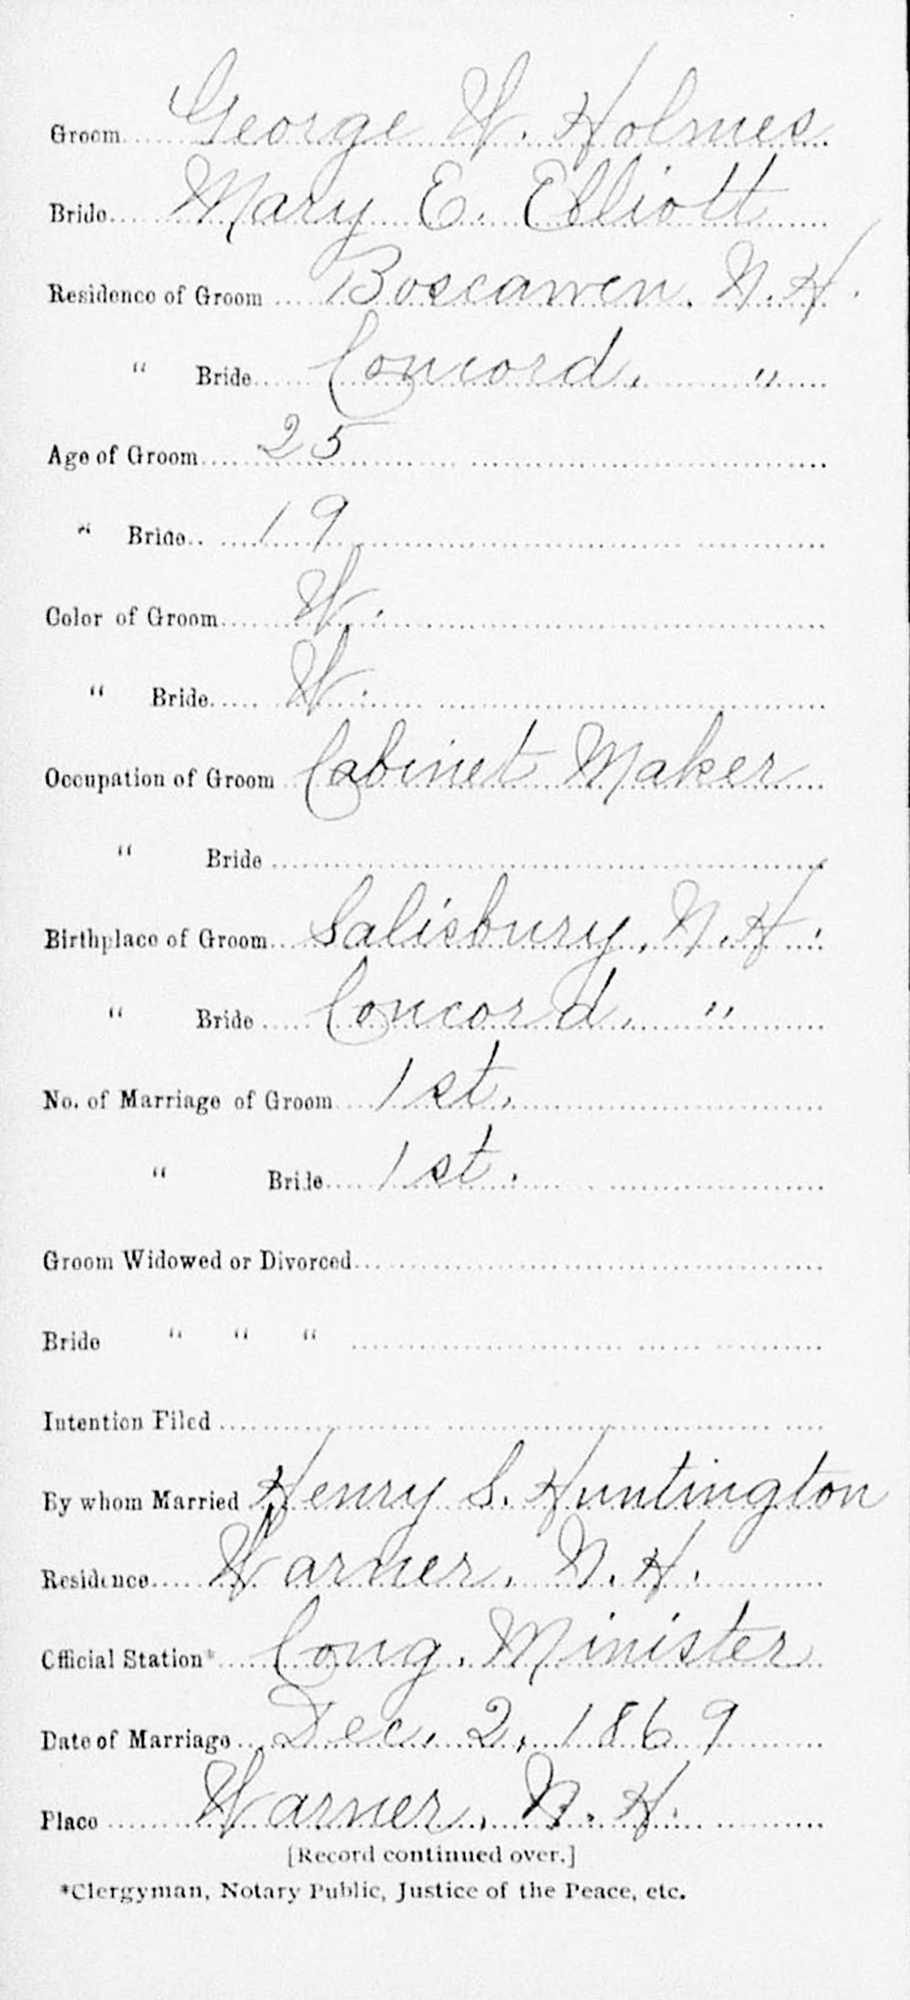 Groom George W. Holmes
Bride Mary E. Elliott
Residence of Groom Boscawen. N.H.
" Bride Concord, "
Age of Groom 25
" Bride 19
Color of Groom W.
" Bride W.
Occupation of Groom Cabinet Maker
" Bride
Birthplace of Groom Salisbury, N.H.
" Bride Concord, "
No. of Marriage of Groom 1st.
" Bride 1st.
Groom Widowed or Divorced
Bride " " "
Intention Filed
By whom Married Henry S. Huntington
Residence Warner, N.H.
Official Station* Cong. Minister
Date of Marriage Dec. 2, 1869
Place Warner, N.H.
[Record continued over.]
*Clergyman, Notary Public, Justice of the Peace, etc.